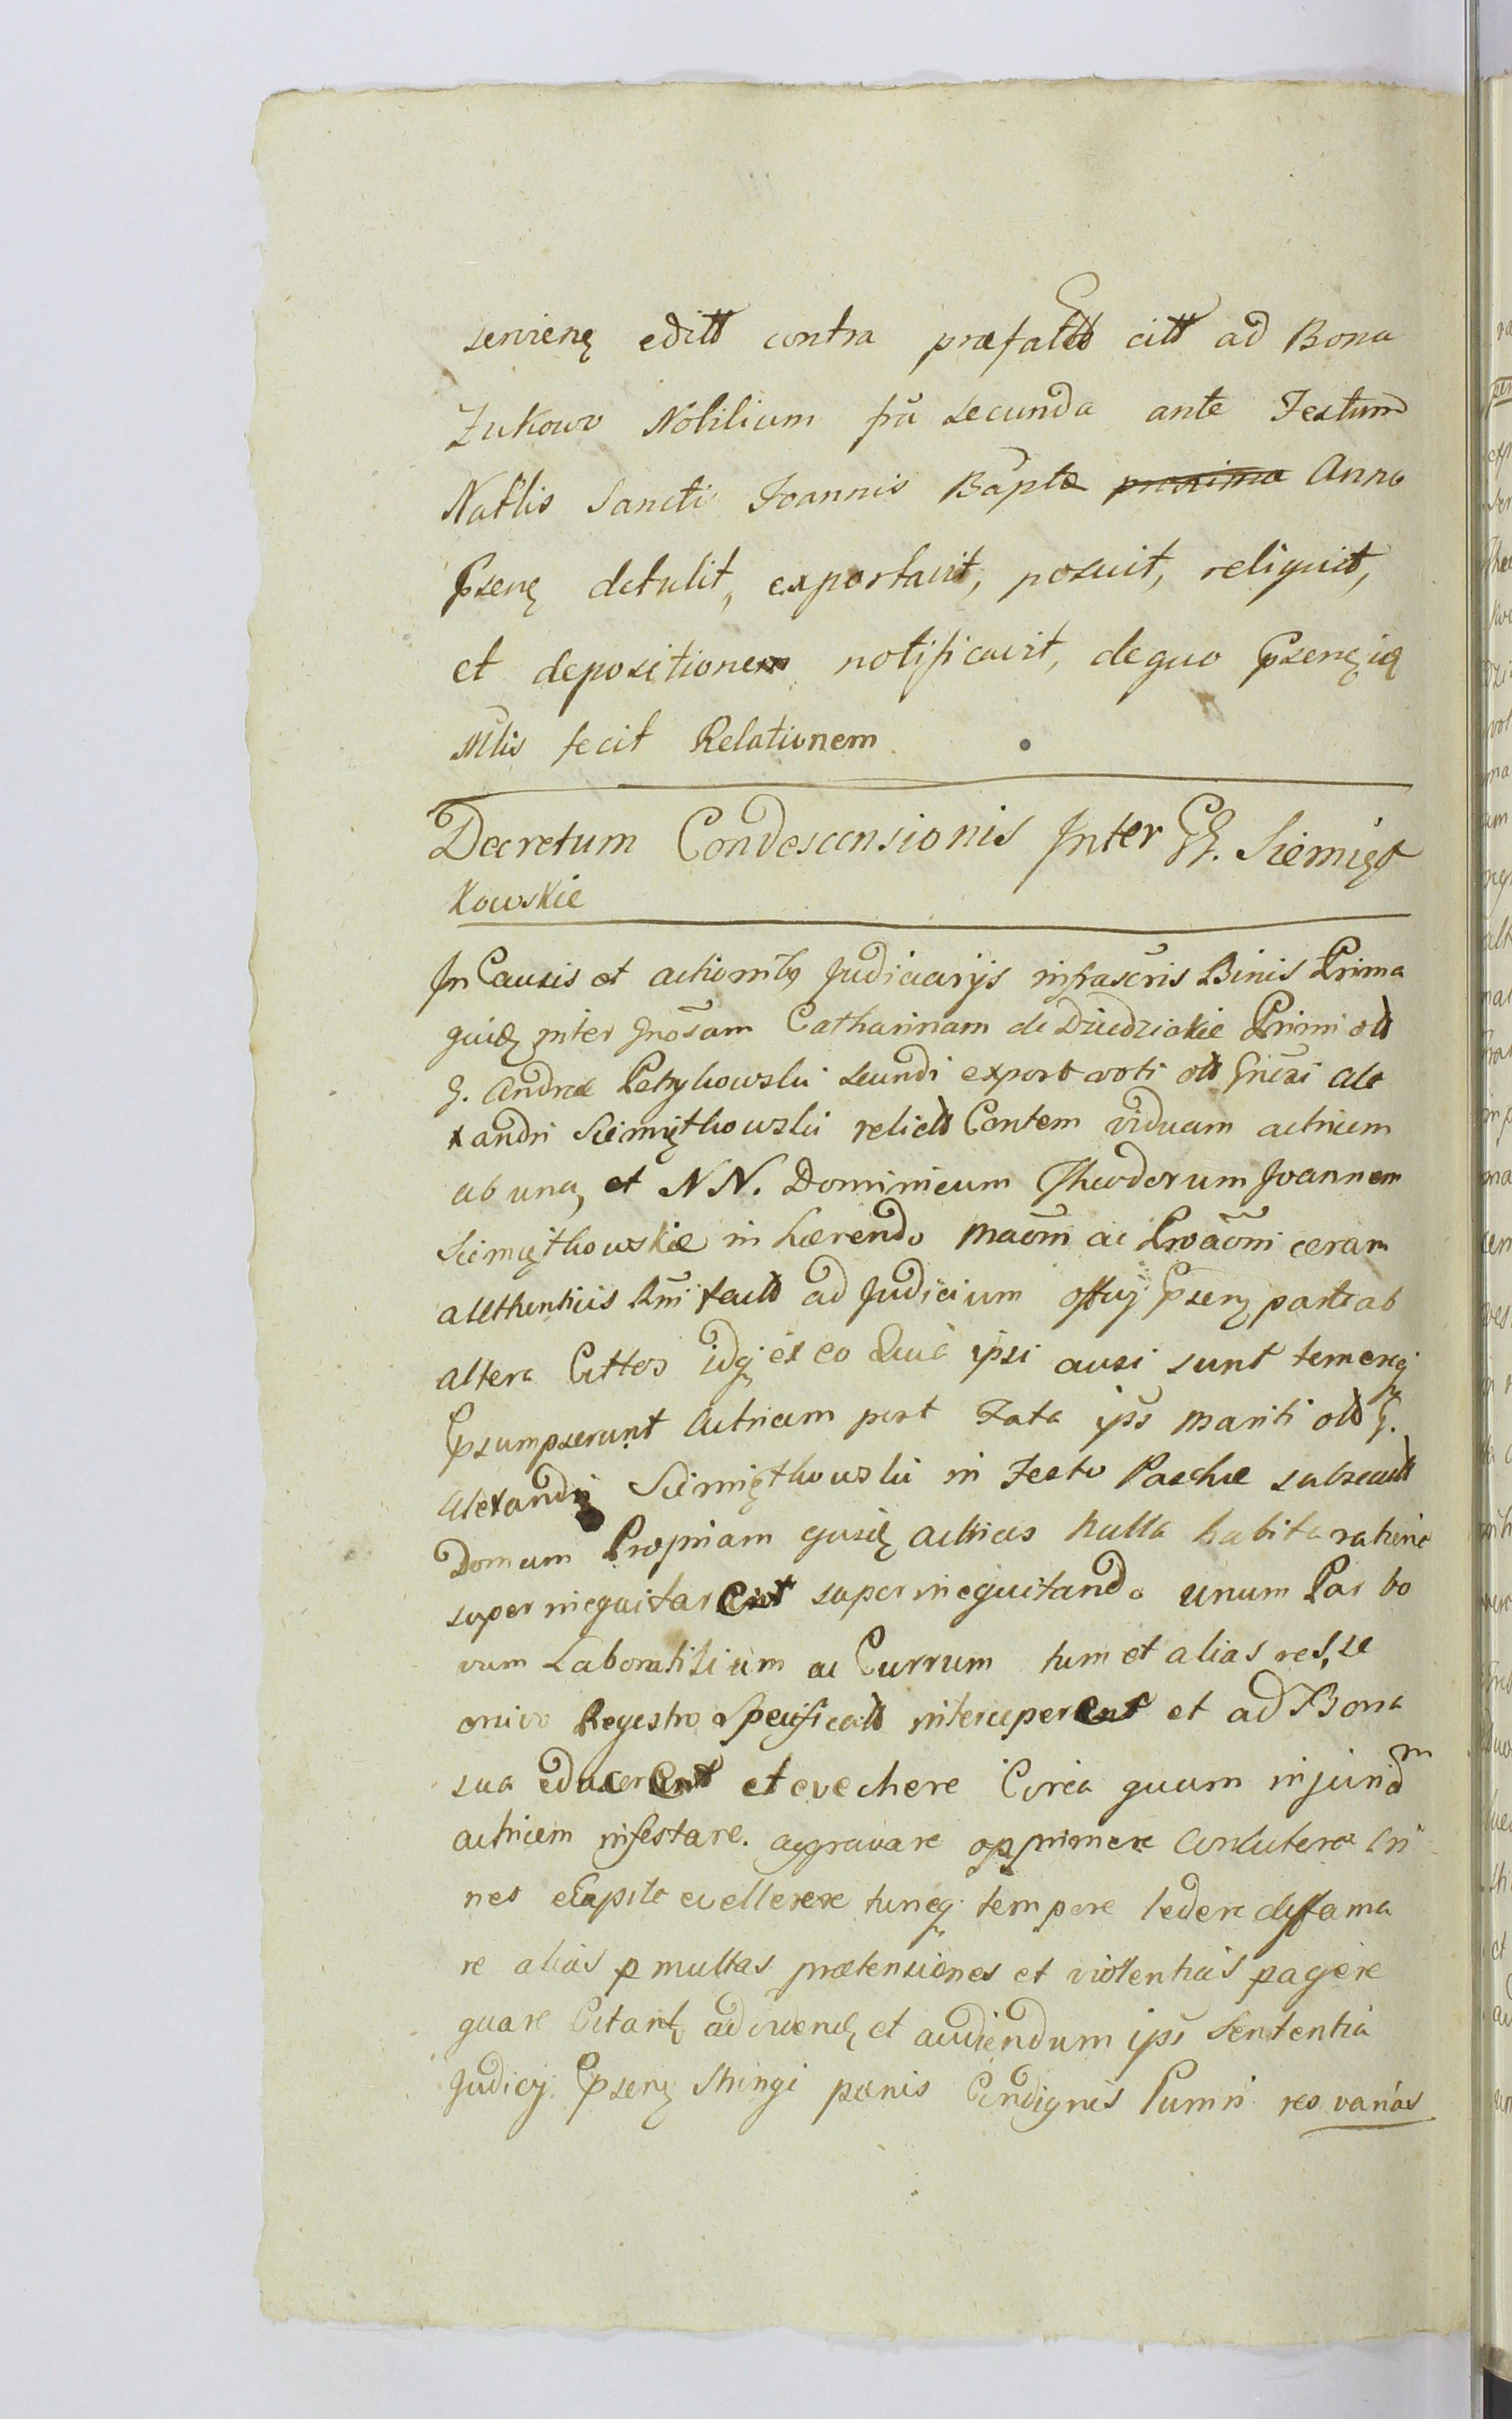 servienę editt contra præfatt citt ad Bona
Zukowo Nobilium fra secunda ante Festum
Natlis Sancti Joannis Baptæ proxima Anno
Psenę detulit, exportavit, posuit, reliquit,
et depositionem notificavit, de quo Psenę
sttlis fecit Relationem
Decretum Condescensionis Inter GG. Siemięt
kowskie
In Causis et actionibq Judiciarijs infrascris Binis Prima
quidę inter Gnosam Catharinam de Dziedzickie Primi ott
G. Andreæ Petrykowski secundi export voti ott Gnosi Ale
xandri Siemiętkowski relictt Contem viduam actricem
ab una, et NN. Dominicum Theodorum Joannem
Siemiętkowskie in hærendo ac
authenticis ad Judicium offuj Psenę parte ab
altera Cittos idq ex eo Quia ipsi ausi sunt temereq
Psumpserunt Actricem post Fata ips mariti ott G.
Alexandri Siemiętkowski in Festo Paschæ subsecutt
Domum Propriam ejusdę actricis nulla habita ratione
superinequitarent superinequitando unum Par bo
vum Laboratilium ac Currum tum et alias res, se
orsivo Regestro specificatt interciperent et ad Bona
sua educerent et evechere Circa quam injuriam
actricem infestare. aggravare opprimere Concutere Cri
nes e Capite evellerere tuncq tempore ledere diffama
re alias p multas prætensiones et violentias pagere
quare Citantę ad videndę et audiendum ips Sententia
Judicij Psenę stringi pænis Condignis Puniri res varias